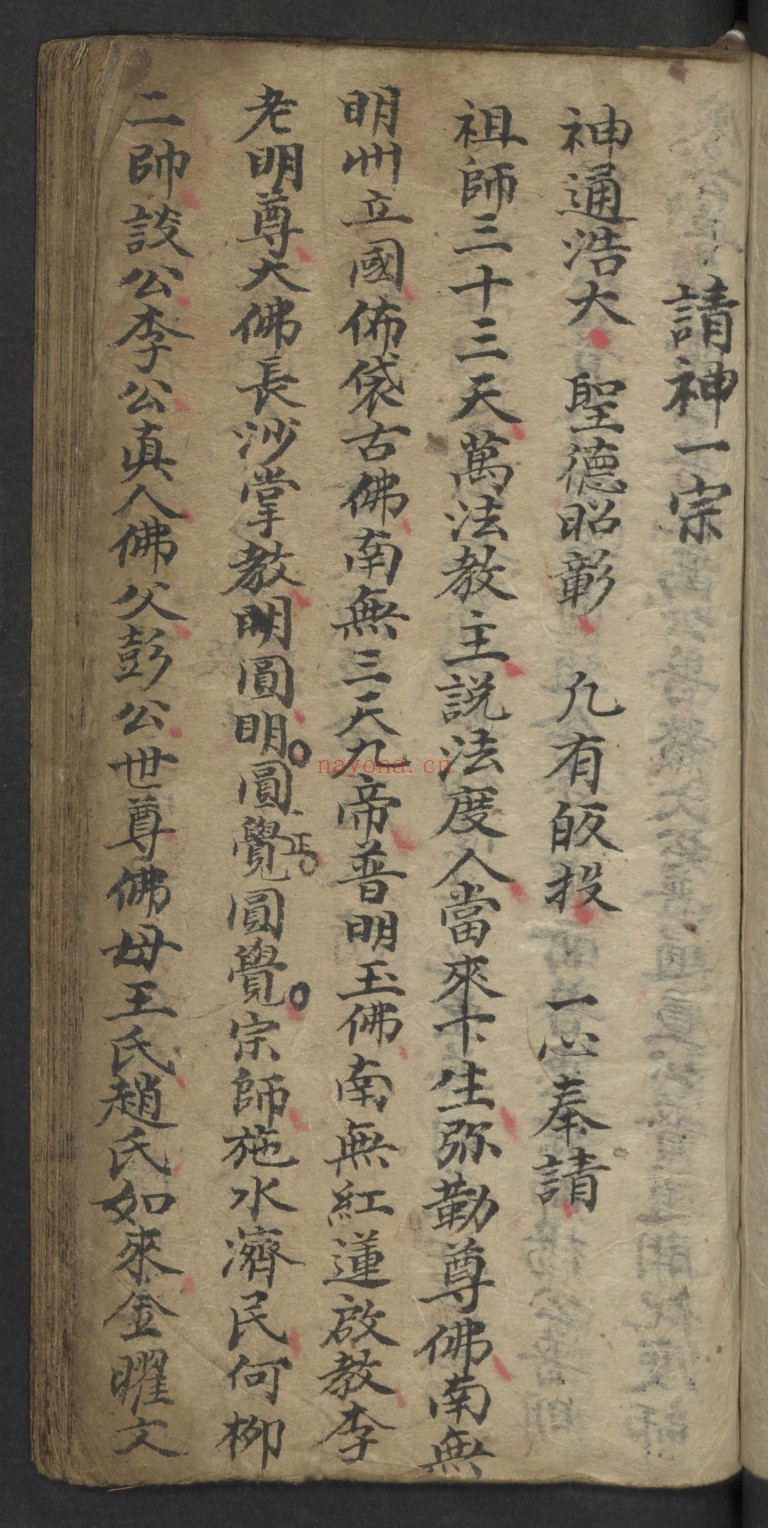 請神一宗
神通浩大 聖德昭彰 凢有皈投 一心奉請
祖師三十三天萬法教主說法度人當來下生弥勒尊佛南無
明州立國佈袋古佛南無三天九帝普明玉佛南無紅蓮啟教李
老明尊大佛長沙掌教明圓明圓覺圓覺宗師施水濟民何柳
二帥談公李公真人佛父彭公世尊佛母王氏趙氏如來金曜文
nayona.cn